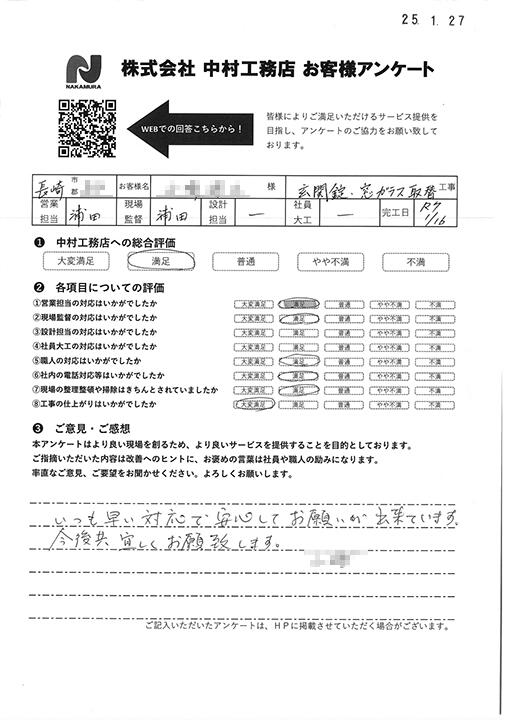 25.1.27
NAKAMURA
株式会社 中村工務店 お客様アンケート
WEBでの回答こちらから！
皆様によりご満足いただけるサービス提供を
目指し、アンケートのご協力をお願い致して
おります。
長崎 市 郡 お客様名 様 玄関錠・窓ガラス取替 工事
営業担当 浦田 現場監督 浦田 設計担当 ― 社員大工 ― 完工日 R7 1/16
❶ 中村工務店への総合評価
大変満足 満足 普通 やや不満 不満
❷ 各項目についての評価
①営業担当の対応はいかがでしたか 大変満足 満足 普通 やや不満 不満
②現場監督の対応はいかがでしたか 大変満足 満足 普通 やや不満 不満
③設計担当の対応はいかがでしたか 大変満足 満足 普通 やや不満 不満
④社員大工の対応はいかがでしたか 大変満足 満足 普通 やや不満 不満
⑤職人の対応はいかがでしたか 大変満足 満足 普通 やや不満 不満
⑥社内の電話対応等はいかがでしたか 大変満足 満足 普通 やや不満 不満
⑦現場の整理整頓や掃除はきちんとされていましたか 大変満足 満足 普通 やや不満 不満
⑧工事の仕上がりはいかがでしたか 大変満足 満足 普通 やや不満 不満
❸ ご意見・ご感想
本アンケートはより良い現場を創るため、より良いサービスを提供することを目的としております。
ご指摘いただいた内容は改善へのヒントに、お褒めの言葉は社員や職人の励みになります。
率直なご意見、ご要望をお聞かせください。よろしくお願いします。
いつも早い対応で安心してお願いが出来ています。
今後共宜しくお願致します。
ご記入いただいたアンケートは、HPに掲載させていただく場合がございます。